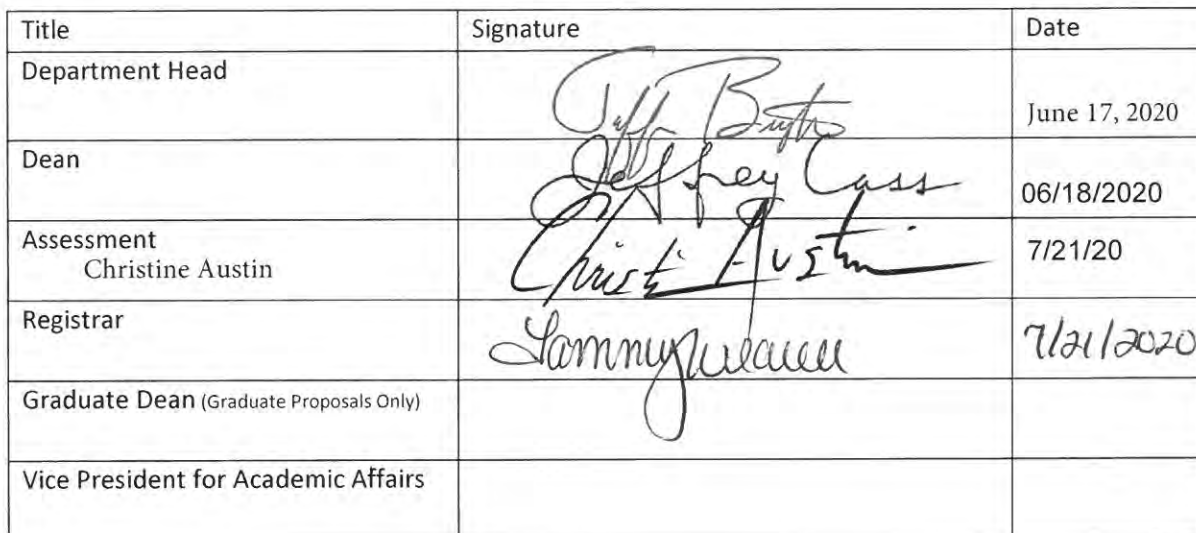 Title Signature Date
Department Head Jeff June 17, 2020
Dean Jeffrey Cass 06/18/2020
Assessment Christi Austin 7/21/20
Christine Austin
Registrar Tammy 7/21/2020
Graduate Dean (Graduate Proposals Only)
Vice President for Academic Affairs